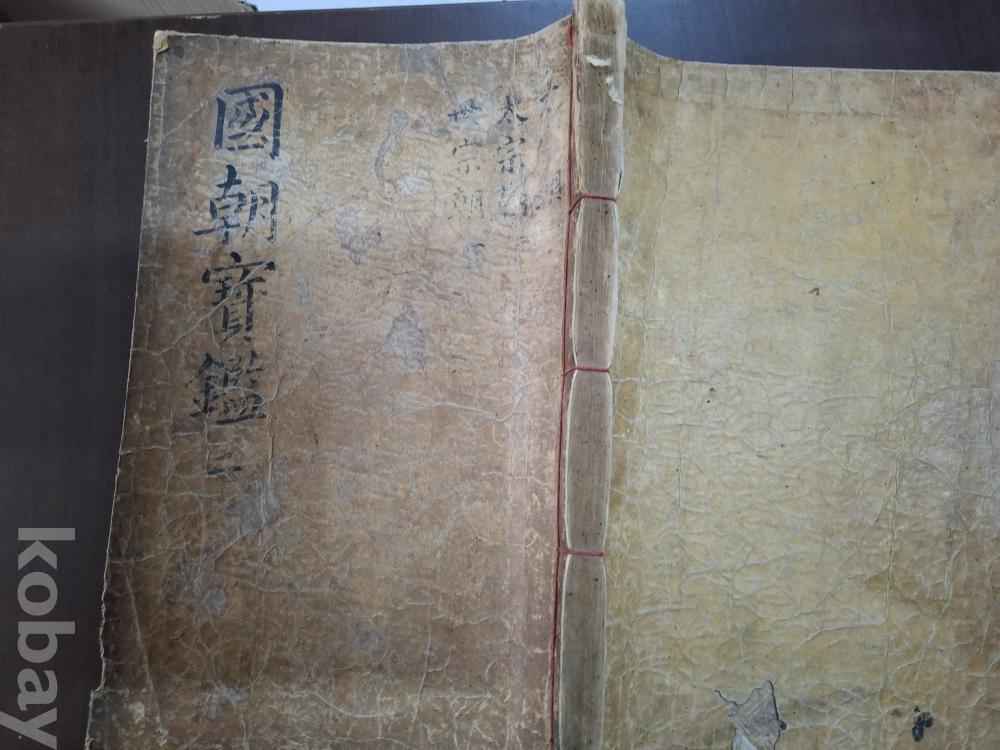 國朝寶鑑 二
太宗朝
世宗朝
kobay